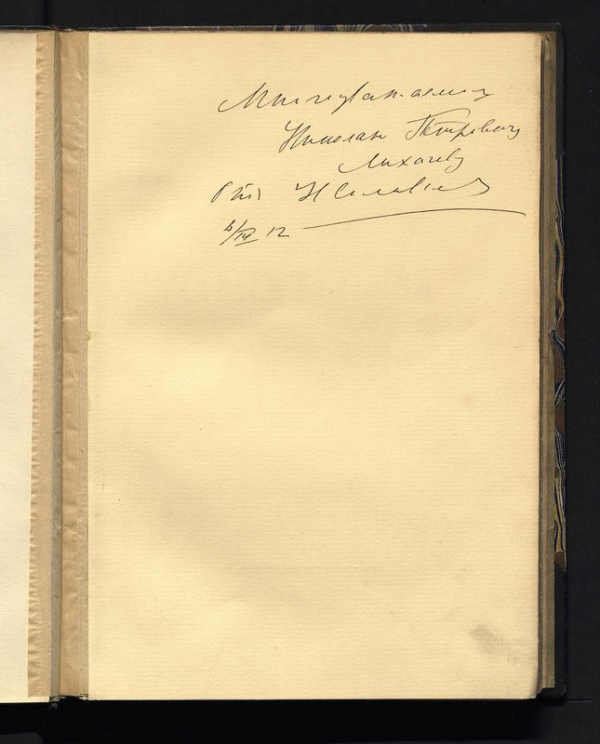 Многоуважаемому
Николаю Петровичу
Лихачеву
отъ
6/IV 12